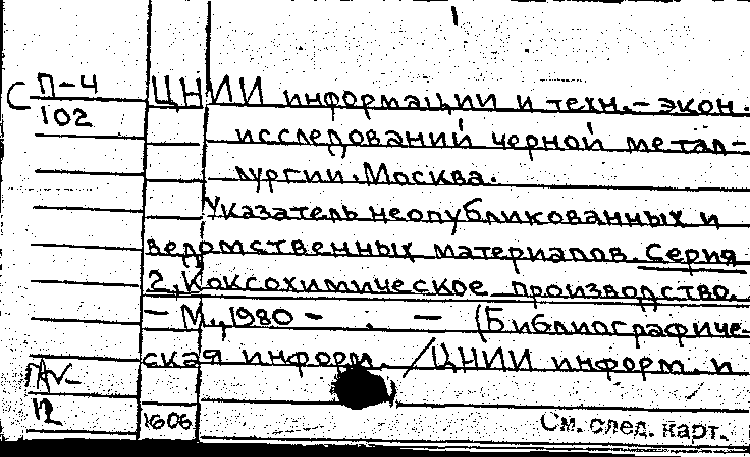 С П-4
102
ЦНИИ информации и техн.-экон.
исследований черной метал-
лургии. Москва.
Указатель неопубликованных и
ведомственных материалов. Серия
2, Коксохимическое производство.
– М., 1980 – . – (Библиографиче-
ская информ. /ЦНИИ информ. и
12
1606
См. след. карт.